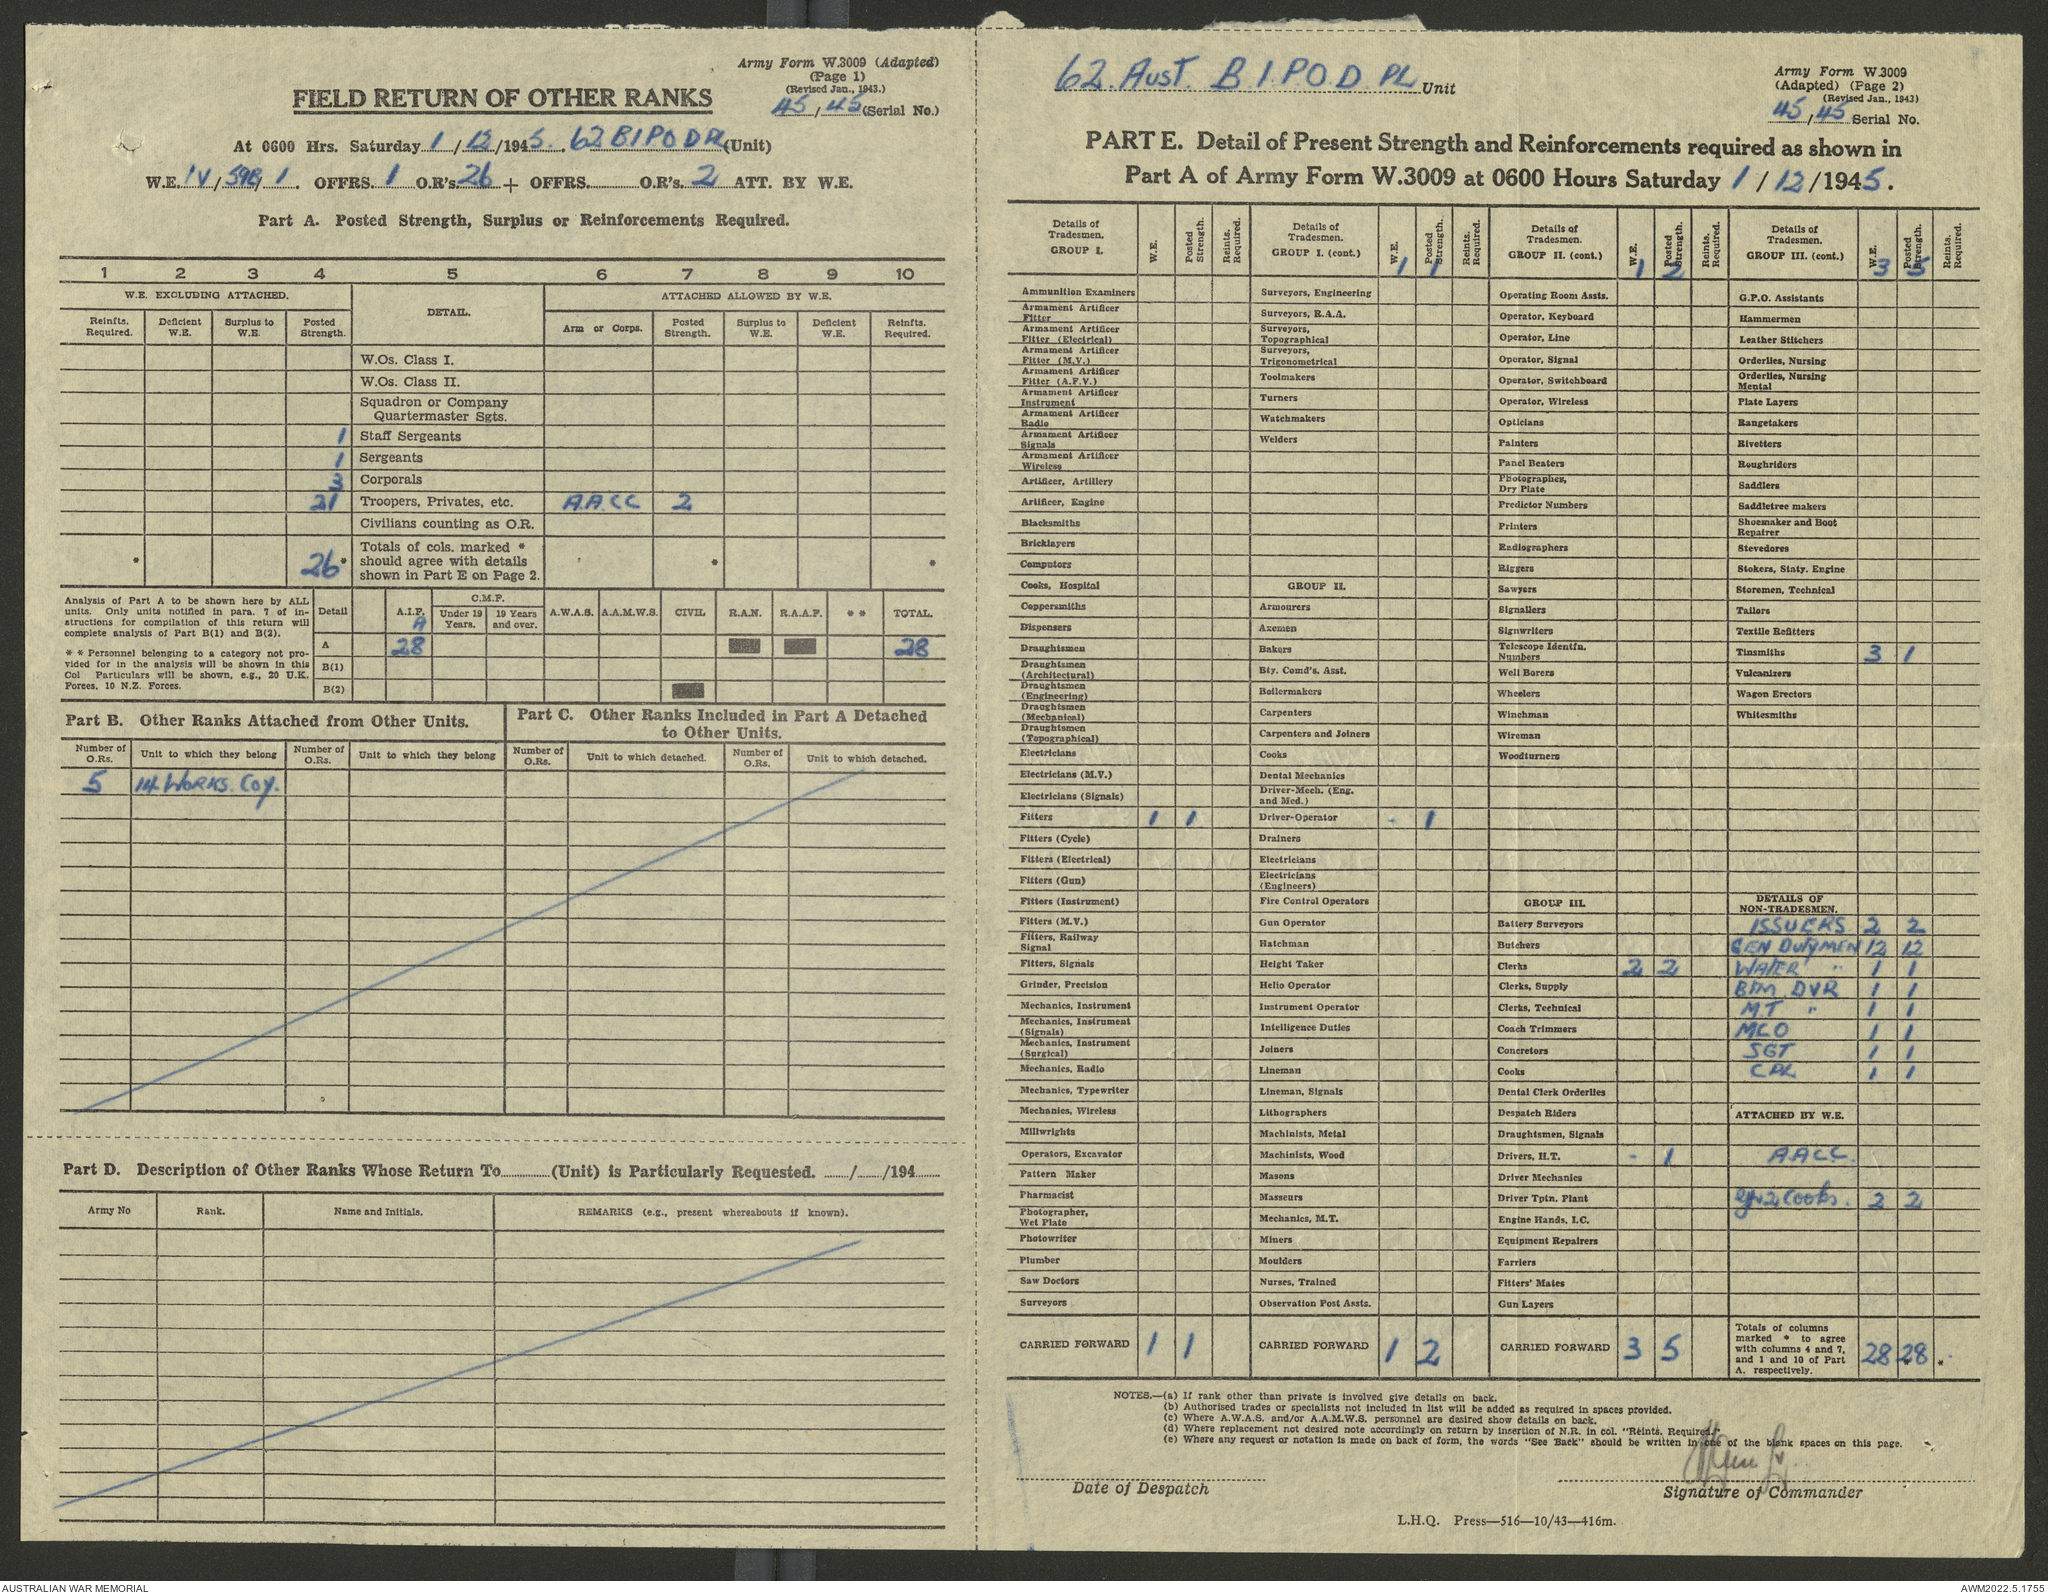 Army Form W.3009 (Adapted)
(Page 1)
(Revised Jan., 1943.)
45/45 (Serial No.)
FIELD RETURN OF OTHER RANKS
At 0600 Hrs. Saturday 1/12/1945. 62 B I P O D PL (Unit)
W.E. IV/59B/1. OFFRS. 1 O.R's. 26 + OFFRS. O.R's. 2 ATT. BY W.E.
Part A. Posted Strength, Surplus or Reinforcements Required.
1 2 3 4 5 6 7 8 9 10
W.E. EXCLUDING ATTACHED. DETAIL. ATTACHED ALLOWED BY W.E.
Reinfts. Required. Deficient W.E. Surplus to W.E. Posted Strength. Arm or Corps. Posted Strength. Surplus to W.E. Deficient W.E. Reinfts. Required.
W.Os. Class I.
W.Os. Class II.
Squadron or Company
Quartermaster Sgts.
1 Staff Sergeants
1 Sergeants
3 Corporals
21 Troopers, Privates, etc. A.A.C.C 2
Civilians counting as O.R.
* 26* Totals of cols. marked * should agree with details shown in Part E on Page 2. * *
Analysis of Part A to be shown here by ALL units. Only units notified in para. 7 of instructions for compilation of this return will complete analysis of Part B(1) and B(2).
** Personnel belonging to a category not provided for in the analysis will be shown in this Col Particulars will be shown, e.g., 20 U.K. Forces, 10 N.Z. Forces.
Detail A.I.F. C.M.F. Under 19 Years. 19 Years and over. A.W.A.S. A.A.M.W.S. CIVIL R.A.N. R.A.A.F. ** TOTAL.
A
A 28 28
B(1)
B(2)
Part B. Other Ranks Attached from Other Units.
Part C. Other Ranks Included in Part A Detached to Other Units.
Number of O.Rs. Unit to which they belong Number of O.Rs. Unit to which they belong Number of O.Rs. Unit to which detached. Number of O.Rs. Unit to which detached.
5 14 WORKS. COY.
Part D. Description of Other Ranks Whose Return To (Unit) is Particularly Requested. / /194
Army No Rank. Name and Initials. REMARKS (e.g., present whereabouts if known).
62 Aust. B.I.P.O.D. PL Unit
Army Form W.3009
(Adapted) (Page 2)
(Revised Jan., 1943)
45/45 Serial No.
PART E. Detail of Present Strength and Reinforcements required as shown in
Part A of Army Form W.3009 at 0600 Hours Saturday 1/12/1945.
Details of Tradesmen. GROUP I. W.E. Posted Strength. Reints. Required.
Ammunition Examiners
Armament Artificer Fitter
Armament Artificer Fitter (Electrical)
Armament Artificer Fitter (M.V.)
Armament Artificer Fitter (A.F.V.)
Armament Artificer Instrument
Armament Artificer Radio
Armament Artificer Signals
Armament Artificer Wireless
Artificer, Artillery
Artificer, Engine
Blacksmiths
Bricklayers
Computors
Cooks, Hospital
Coppersmiths
Dispensers
Draughtsmen
Draughtsmen (Architectural)
Draughtsmen (Engineering)
Draughtsmen (Mechanical)
Draughtsmen (Topographical)
Electricians
Electricians (M.V.)
Electricians (Signals)
Fitters 1 1
Fitters (Cycle)
Fitters (Electrical)
Fitters (Gun)
Fitters (Instrument)
Fitters (M.V.)
Fitters, Railway Signal
Fitters, Signals
Grinder, Precision
Mechanics, Instrument
Mechanics, Instrument (Signals)
Mechanics, Instrument (Surgical)
Mechanics, Radio
Mechanics, Typewriter
Mechanics, Wireless
Millwrights
Operators, Excavator
Pattern Maker
Pharmacist
Photographer, Wet Plate
Photowriter
Plumber
Saw Doctors
Surveyors
CARRIED FORWARD 1 1
Details of Tradesmen. GROUP I. (cont.) W.E. Posted Strength. Reints. Required.
1 1
Surveyors, Engineering
Surveyors, R.A.A.
Surveyors, Topographical
Surveyors, Trigonometrical
Toolmakers
Turners
Watchmakers
Welders
GROUP II.
Armourers
Axemen
Bakers
Bty. Comd's. Asst.
Boilermakers
Carpenters
Carpenters and Joiners
Cooks
Dental Mechanics
Driver-Mech. (Eng. and Med.)
Driver-Operator - 1
Drainers
Electricians
Electricians (Engineers)
Fire Control Operators
Gun Operator
Hatchman
Height Taker
Helio Operator
Instrument Operator
Intelligence Duties
Joiners
Lineman
Lineman, Signals
Lithographers
Machinists, Metal
Machinists, Wood
Masons
Masseurs
Mechanics, M.T.
Miners
Moulders
Nurses, Trained
Observation Post Assts.
CARRIED FORWARD 1 2
Details of Tradesmen. GROUP II. (cont.) W.E. Posted Strength. Reints. Required.
1 2
Operating Room Assts.
Operator, Keyboard
Operator, Line
Operator, Signal
Operator, Switchboard
Operator, Wireless
Opticians
Painters
Panel Beaters
Photographer, Dry Plate
Predictor Numbers
Printers
Radiographers
Riggers
Sawyers
Signallers
Signwriters
Telescope Identfn. Numbers
Well Borers
Wheelers
Winchman
Wireman
Woodturners
GROUP III.
Battery Surveyors
Butchers
Clerks 2 2
Clerks, Supply
Clerks, Technical
Coach Trimmers
Concretors
Cooks
Dental Clerk Orderlies
Despatch Riders
Draughtsmen, Signals
Drivers, H.T. - 1
Driver Mechanics
Driver Tptn. Plant
Engine Hands, I.C.
Equipment Repairers
Farriers
Fitters' Mates
Gun Layers
CARRIED FORWARD 3 5
Details of Tradesmen. GROUP III. (cont.) W.E. Posted Strength. Reints. Required.
3 5
G.P.O. Assistants
Hammermen
Leather Stitchers
Orderlies, Nursing
Orderlies, Nursing Mental
Plate Layers
Rangetakers
Rivetters
Roughriders
Saddlers
Saddletree makers
Shoemaker and Boot Repairer
Stevedores
Stokers, Staty. Engine
Storemen, Technical
Tailors
Textile Refitters
Tinsmiths 3 1
Vulcanizers
Wagon Erectors
Whitesmiths
DETAILS OF NON-TRADESMEN.
ISSUERS 2 2
GEN DUTYMEN 12 12
WATER " 1 1
BDM DVR 1 1
MT " 1 1
MCO 1 1
SGT 1 1
CPL 1 1
ATTACHED BY W.E.
A.A.C.C.
2 Cooks. 2 2
Totals of columns marked * to agree with columns 4 and 7, and 1 and 10 of Part A. respectively. 28 28 *
NOTES.—(a) If rank other than private is involved give details on back.
(b) Authorised trades or specialists not included in list will be added as required in spaces provided.
(c) Where A.W.A.S. and/or A.A.M.W.S. personnel are desired show details on back.
(d) Where replacement not desired note accordingly on return by insertion of N.R. in col. "Reints. Required."
(e) Where any request or notation is made on back of form, the words "See Back" should be written in one of the blank spaces on this page.
Date of Despatch
Signature of Commander
L.H.Q. Press—516—10/43—416m.
AUSTRALIAN WAR MEMORIAL
AWM2022.5.1755